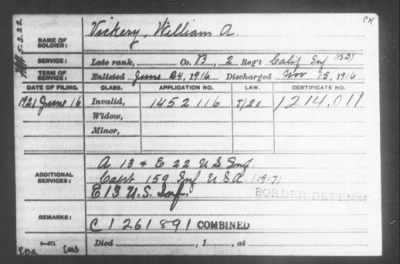 NAME OF SOLDIER: Vickery, William A.
SERVICE: Late rank, Co. B, 2 Reg't Calif Inf
TERM OF SERVICE: Enlisted June 24, 1916 Discharged Nov 15, 1916
DATE OF FILING. CLASS. APPLICATION NO. LAW. CERTIFICATE NO.
1921 June 16 Invalid, 1452116 J/20 1214,011
Widow,
Minor,
ADDITIONAL SERVICES: A 13 & E 22 U S Inf.
Capt 159 Inf U.S.A. (1917)
E 13 U.S. Inf. BORDER DEFENSE
REMARKS: C 1 261 891 COMBINED
Died , 1 , at